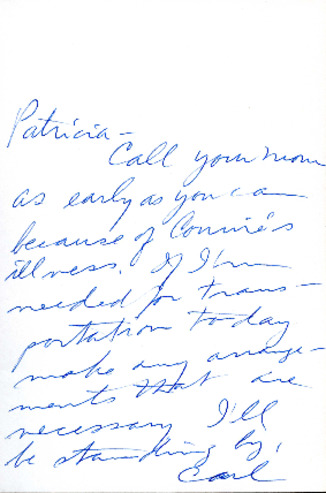 Patricia -
Call your mom
as early as you can
because of Connie's
illness. If I'm
needed for trans-
portation today
make any arrange-
ments that are
necessary I'll
be standing by,
Earl